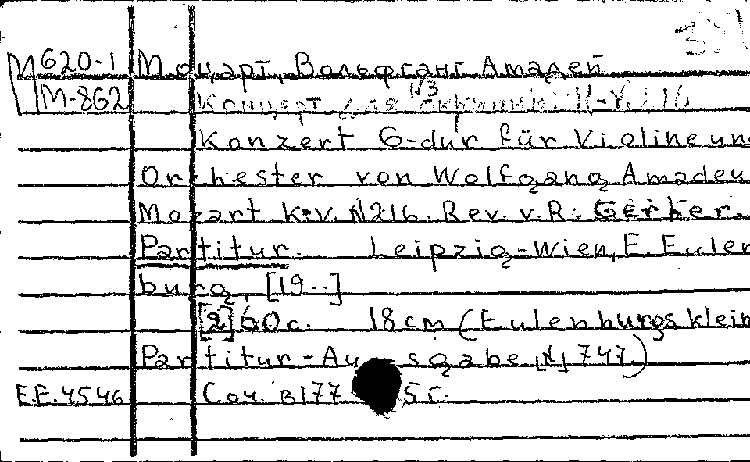 M620-1 Моцарт, Вольфганг Амадей
M-862 Концерт №3 для скрипки К-V. 216
Konzert G-dur für Violine un
Orchester von Wolfgang Amadeu
Mozart K.V. N216. Rev. v. R. Gerber.
Partitur. Leipzig-Wien, E. Eulen
burg, [19..]
[2] 60 с. 18 cm (Eulenburgs klein
Partitur-Ausgabe, N 747.)
E.E. 4546 Соч. в 177 5 г.